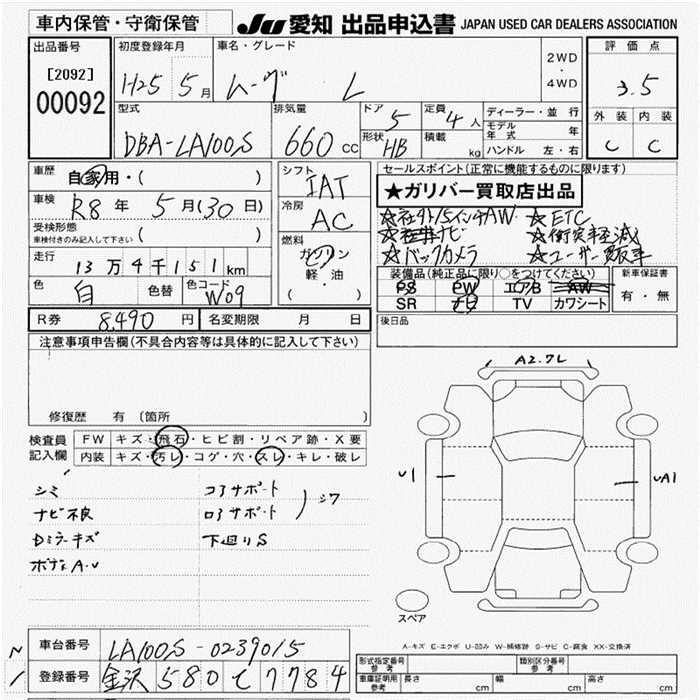 車内保管・守衛保管
JU 愛知 出品申込書 JAPAN USED CAR DEALERS ASSOCIATION
出品番号 初度登録年月 車名・グレード 評価点
[2092] 2WD
00092 H25 5月 ムーヴ L 4WD 3.5
型式 排気量 ドア 5 定員 4人 ディーラー・並行 外装 内装
DBA-LA100S 660cc 形状 HB 積載 kg モデル年式 年 C C
ハンドル 左・右
車歴 自家用・( ) シフト IAT セールスポイント(正常に機能するものに限ります)
★ガリバー買取店出品
車検 R8年 5月(30日) 冷房 AC ☆社外15インチAW ☆ETC
受検形態 車検付きのみ記入して下さい ( ) 燃料 ☆ナビ ☆衝突軽減
走行 13万4千151km ガソリン ☆バックカメラ ☆ユーザー買取車
軽・油 装備品(純正品に限り○をつけてください) 新車保証書
色 白 色替 色コード W09 (・) PS PW エアB AW 有・無
SR ナビ TV カワシート
R券 8,490円 名変期限 月 日 後日品
注意事項申告欄(不具合内容等は具体的に記入して下さい)
A2.7L
修復歴 有〔箇所 〕
検査員 FW キズ・飛石・ヒビ割・リペア跡・X要
記入欄 内装 キズ・汚レ・コゲ・穴・スレ・キレ・破レ
U1 UA1
シミ コアサポート
ナビ不良 ロアサポート )シワ
Dミラーキズ 下廻りS
ボディA・U
スペア
A-キズ E-エクボ U-凹み W-補修跡 S-サビ C-腐食 XX-交換済
車台番号 LA100S-0239015
登録番号 金沢 580 て 7784
形式指定番号 参考 類別区分番号 参考
車庫証明用 参考 長さ cm 幅 cm 高さ cm